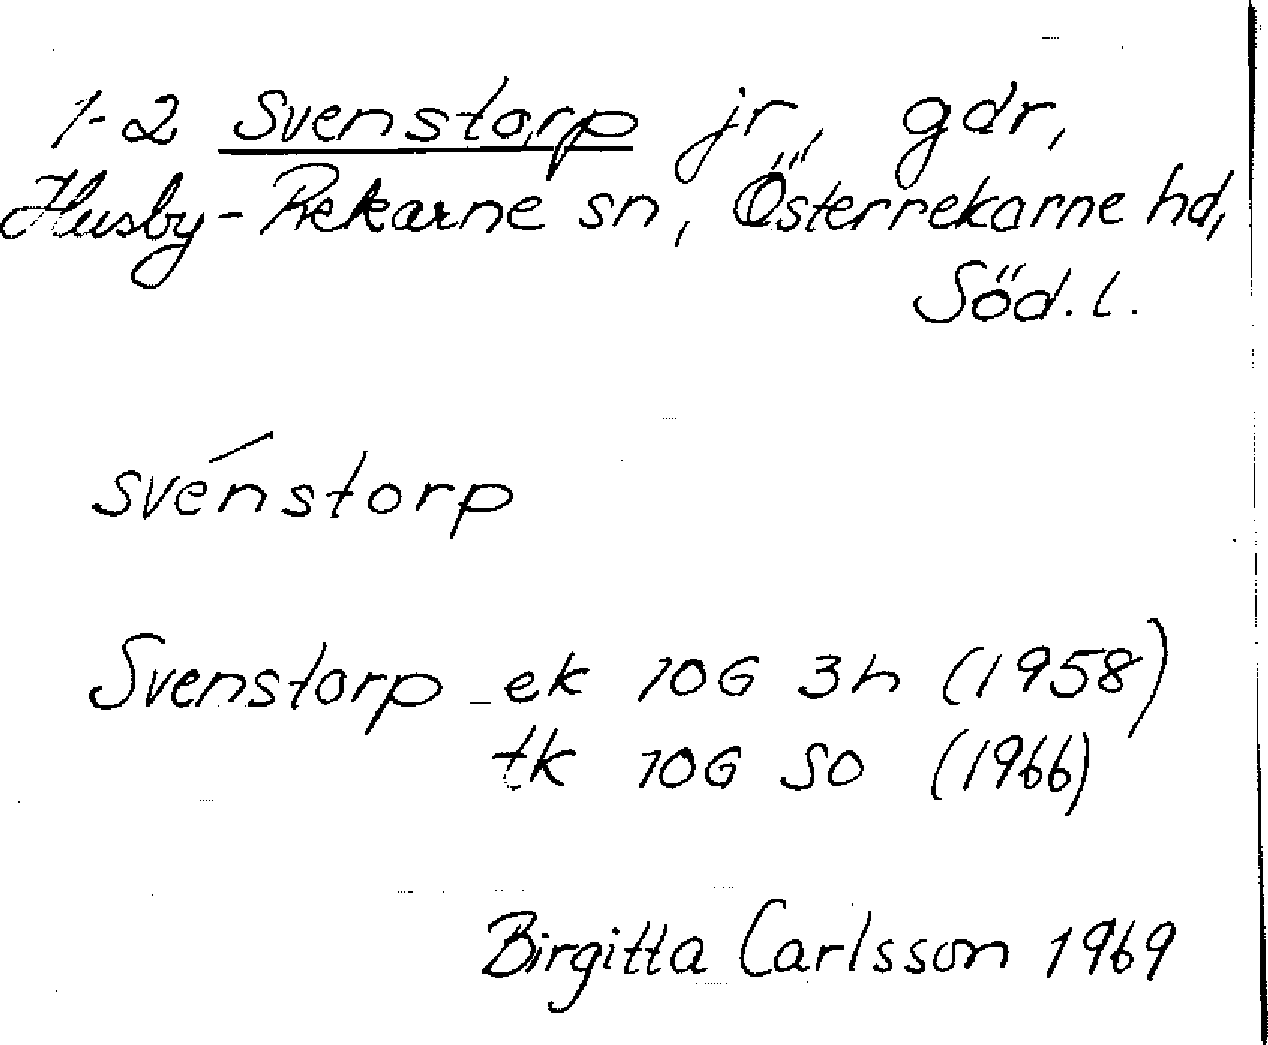 1-2 Svenstorp jr, gdr,
Husby-Rekarne sn, Österrekarne hd,
Söd.l.
svénstorp
Svenstorp - ek 10G 3h (1958)
tk 10G SO (1966)
Birgitta Carlsson 1969